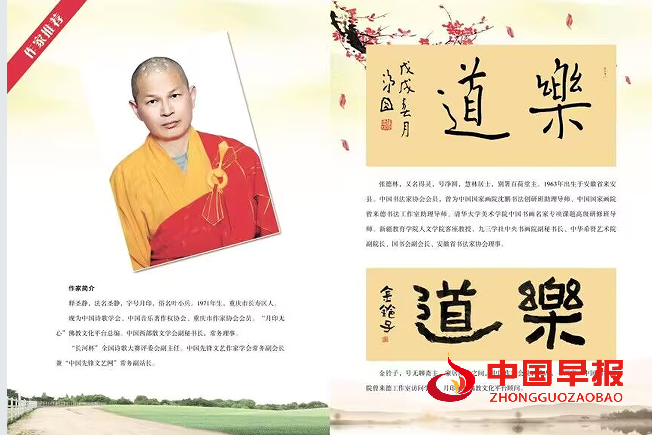 作家推荐
作家简介
释圣静，法名圣静，字号月印，俗名叶小兵。1971年生，重庆市长寿区人。
现为中国诗歌学会、中国音乐著作权协会、重庆市作家协会会员。“月印无
心”佛教文化平台总编。中国西部散文学会副秘书长，常务理事。
“长河杯”全国诗歌大赛评委会副主任。中国先锋文艺作家学会常务副会长
兼“中国先锋文艺网”常务副站长。
樂道
戊戌春月
张德林，又名得灵，号净圆，慧林居士，别署百荷堂主。1963年出生于安徽省来安
县。中国书法家协会会员，曾为中国国家画院沈鹏书法创研班助理导师、中国国家画院
曾来德书法工作室助理导师。清华大学美术学院中国书画名家专项课题高级研修班导
师。新疆教育学院人文学院客座教授。九三学社中央书画院副秘书长、中华希贤艺术院
副院长、国书会副会长、安徽省书法家协会理事。
樂道
金铃子
金铃子，号无聊斋主，家居
院曾来德工作室访问学
月印
佛教文化平台顾问。
中国早报
ZHONGGUOZAOBAO